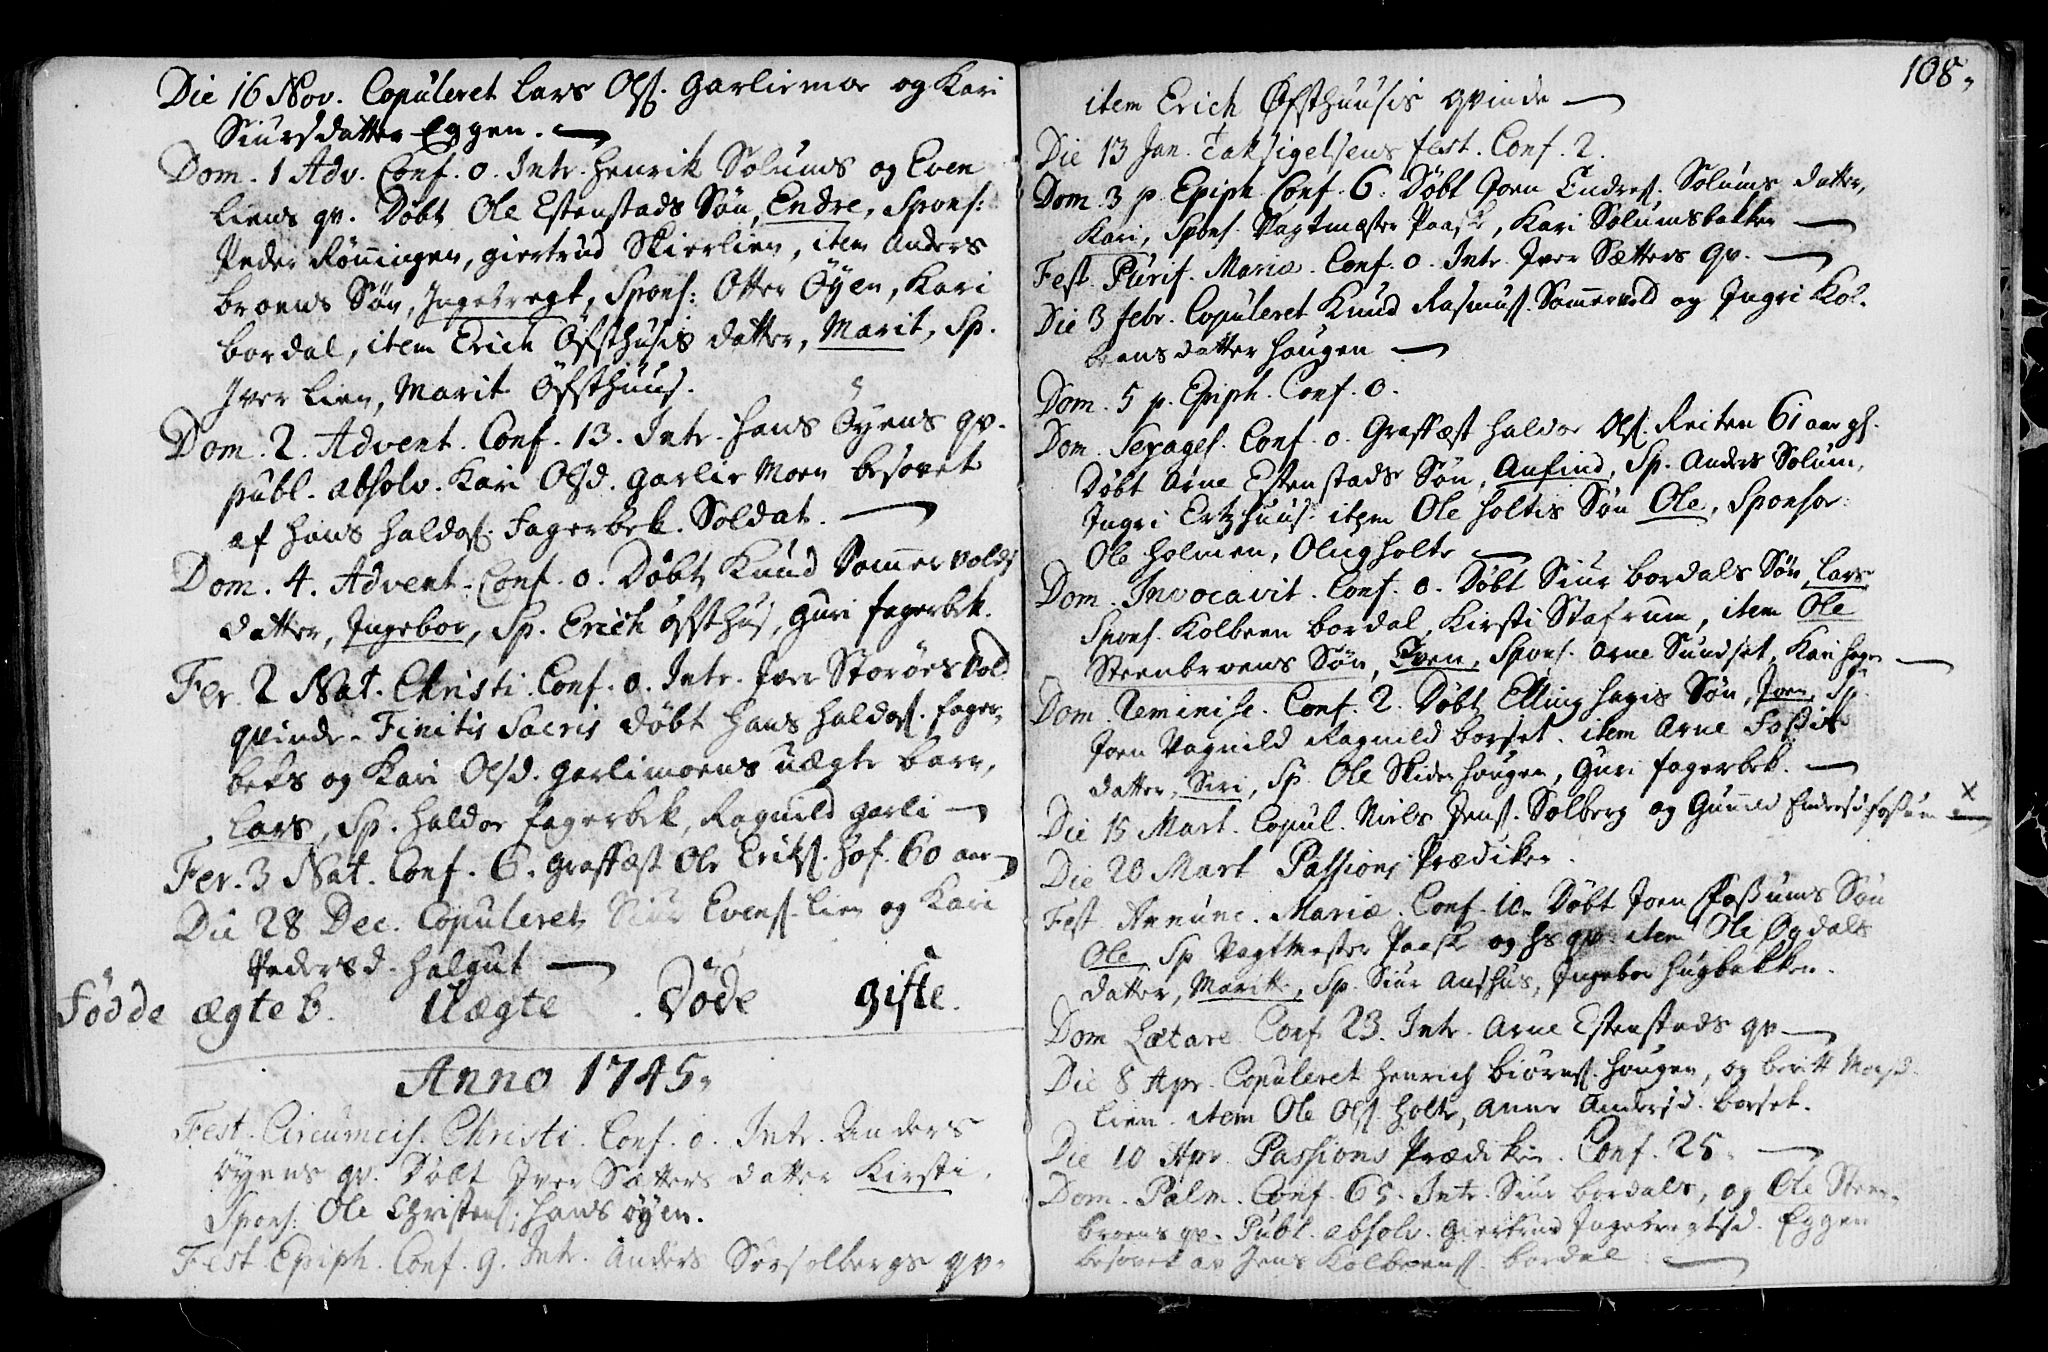 Die 16 Nov. Copuleret Lars Olss. Garliemoe og Kari
Siursdatter Eggen.
Dom. 1 Adv. Conf. 0. Intr. Henrik Solums og Even
Liens qv. Døbt Ole Estenstads Søn, Endre, Spons:
Peder Rønningen, giertrud Skierlien, item Anders
broens Søn, Ingebregt, Spons: Otter Öyen, Kari
bordal, item Erich Öfsthusis datter, Marit, Sp.
Iver Lien, Marit Öfsthuus.
Dom. 2. Advent. Conf. 13. Intr. Hans Öyens qv.
publ. absolv. Kari Olsd. Garlie Moen besovet
af Hans Haldoss. Fagerbek. Soldat.
Dom. 4. Advent. Conf. 0. Døbt Knud Sommervolds
datter, Ingebor, Sp. Erich Öfsthus, Guri fagerbek.
Fer. 2 Nat. Christi. Conf. 0. Intr. Iver Storöesvold
qvinde. Finitis Sacris døbt Hans Haldoss. fager,
beks og Kari Olsd. Garlimoens uægte barn,
Lars, Sp. Haldor fagerbek, Ragnild Garli
Fer. 3 Nat. Conf. 6. Graffæst Ole Erikss. Hof. 60 aar
Die 28 Dec. Copuleret Siur Evenss. Lien og Kari
Pedersd. Halgut
Födde ægte b. Uægte. Döde gifte.
Anno 1745.
Fest. Circumcis. Christi. Conf. 0. Intr. Anders
Öyens qv. Døbt Iver Sætters datter Kirsti,
Spons: Ole Christens, Hans öyen.
Fest. Epiph. Conf. 9. Intr. Anders Sörsolbergs qv.
108.
item Erich Öfsthuusis qvinde
Die 13 Jan. Taksigelsens fest. Conf. 2.
Dom. 3 p. Epiph. Conf. 6. Døbt Joen Endress. Solums datter,
Kari, Spons. Vagtmæster Paaske, Kari Solumsbakken
Fest. Purif. Mariæ. Conf. 0. Intr. Iver Sætters qv.
Die 3 febr. Copuleret Knud Rasmuss. Sommervold og Ingri Kol.
beensdatter Haugen
Dom. 5 p. Epiph. Conf. 0.
Dom. Sexages. Conf. 0. Graffæst Haldor Olss. Reiten 61 aar gl.
Døbt Arne Estenstads Søn, Anfind, Sp. Anders Solum,
Ingri Ertzhuus. item Ole Holtis Søn Ole, Sponsor:
Ole Holmen, Olug Holte
Dom. Invocavit. Conf. 0. Døbt Siur bordals Søn, Lars
Spons. Kolbeen bordal, Kirsti Stafrum, item Ole
Steenbroens Søn, Even, Spons. Arne Sundset, Kari Hage
Dom. Reminisc. Conf. 2. Døbt Elling Hagis Søn, Joen, Sp.
Joen Vagnild Ragnild borset. item Arne Foßis
datter, Siri, Sp. Ole Skidenhougen, Guri fagerbek.
Die 15 Mart. Copul. Niels Jenss. Solberg og Gunnild Endersd. foßum x
Die 20 Mart Passions Prædiken.
Fest Annunc. Mariæ. Conf. 10. Døbt Joen Foßums Søn
Ole, Sp Vagtmester Paaske og hs qv. item Ole Opdals
datter, Marit, Sp. Siur Aushus, Ingebor Hugbakken.
Dom Lætare Conf. 23. Intr. Arne Estenstads qv
Die 8 Apr. Copuleret Henrich biörnss. Hougen, og beritt
Lien. item Ole Olss. Holte, Anne Andersd. borset.
Die 10 Apr. Passions Prædiken. Conf. 25.
Dom. Palm. Conf. 65. Intr. Siur bordals, og Ole Steen.
broens qv. Publ. absolv. Giertrud Ingebregtsd. Eggen
besovet av Jens Kolbeenss. bordal